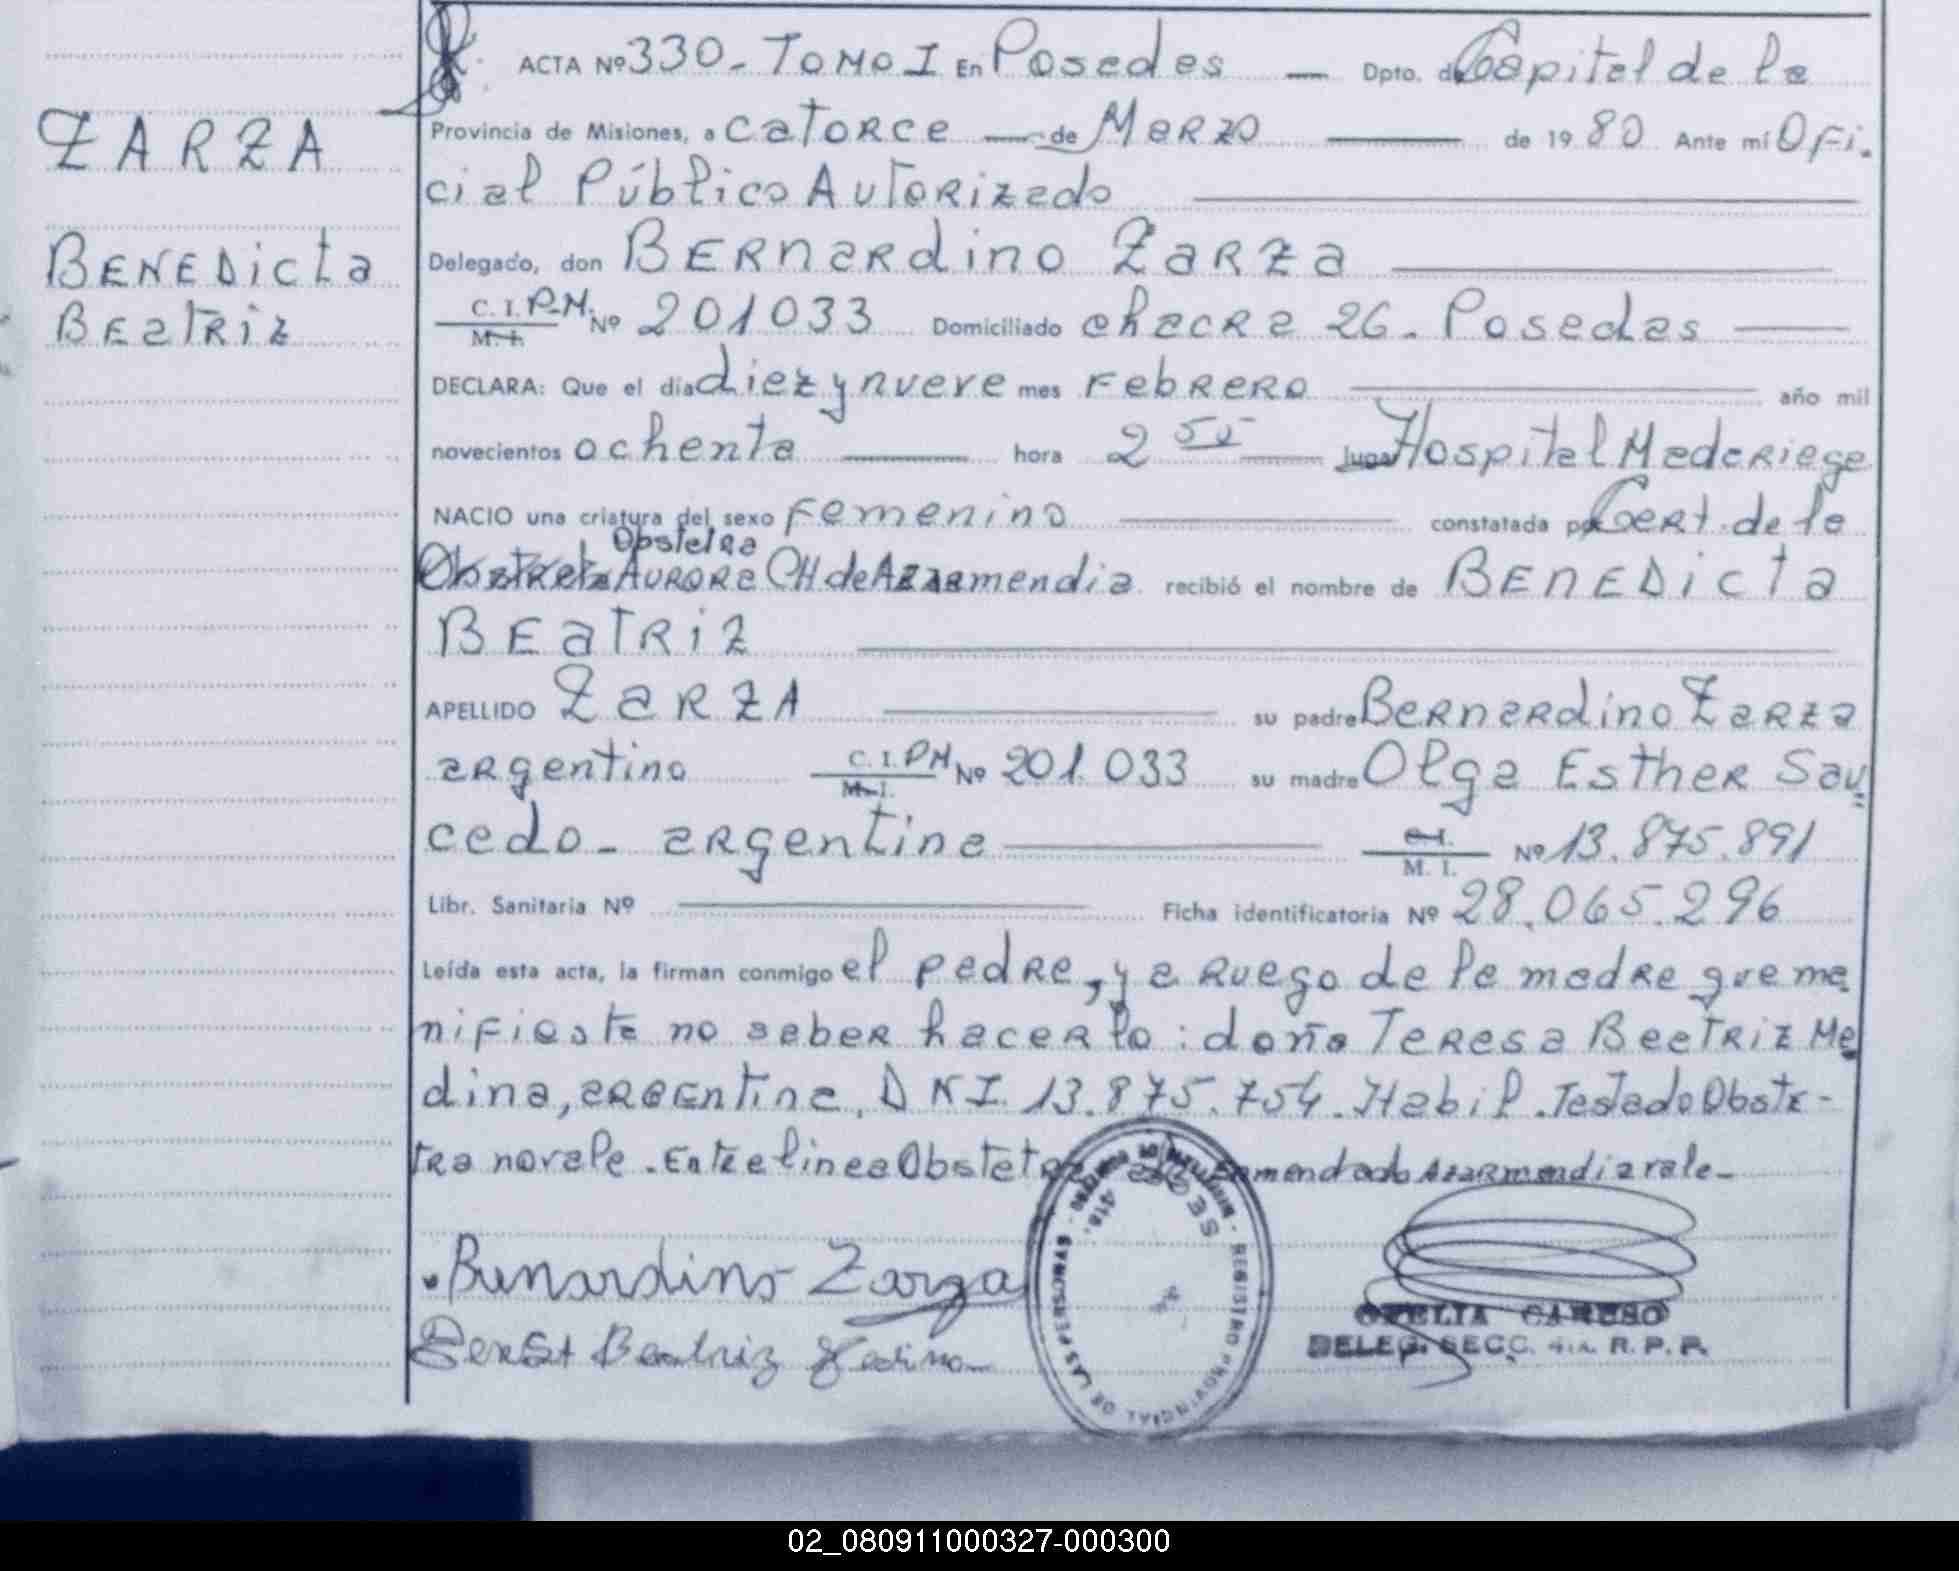 ZARZA
BENEDicta
BEatRiz
ACTA Nº 330 - TOMO I En Posadas — Dpto. de Capital de la
Provincia de Misiones, a CATORCE — de MARZO — de 1980. Ante mí Ofi-
cial Público Autorizado
Delegado, don BERnaRdino ZaRZa
C. I. P.M. M. I. Nº 201033 Domiciliado chacRa 26 - Posadas
DECLARA: Que el día diez y nueve mes FebRERo año mil
novecientos ochenta hora 2 55 lugar Hospital Madariaga
NACIO una criatura del sexo Femenino constatada por Cert. de la
Obstetra
Obstetra AURORa CH de Azarmendia recibió el nombre de BEnEDicta
BEatRiz
APELLIDO ZaRZA su padre BeRnaRdino ZaRza
aRgentino C. I. PM M. I. Nº 201.033 su madre Olga EstheR Sau-
cedo - aRgentina C. I. M. I. Nº 13.875.891
Libr. Sanitaria Nº Ficha identificatoria Nº 28.065.296
Leída esta acta, la firman conmigo el padRe, y a Ruego de la madRe que ma-
nifiesta no sabeR haceRlo: doña TeResa BeatRiz Me-
dina, aRGEntina, D N I. 13.875.754. Habil. Testado Obste-
tra no vale. Entrelinea Obstetra Enmendado Azarmendia vale-
Bernardino Zarza
Teresa Beatriz Medina
REGISTRO PROVINCIAL DE LAS PERSONAS
OFELIA CARUSO
DELEG. SECC. 4ta. R. P. P.
02_080911000327-000300